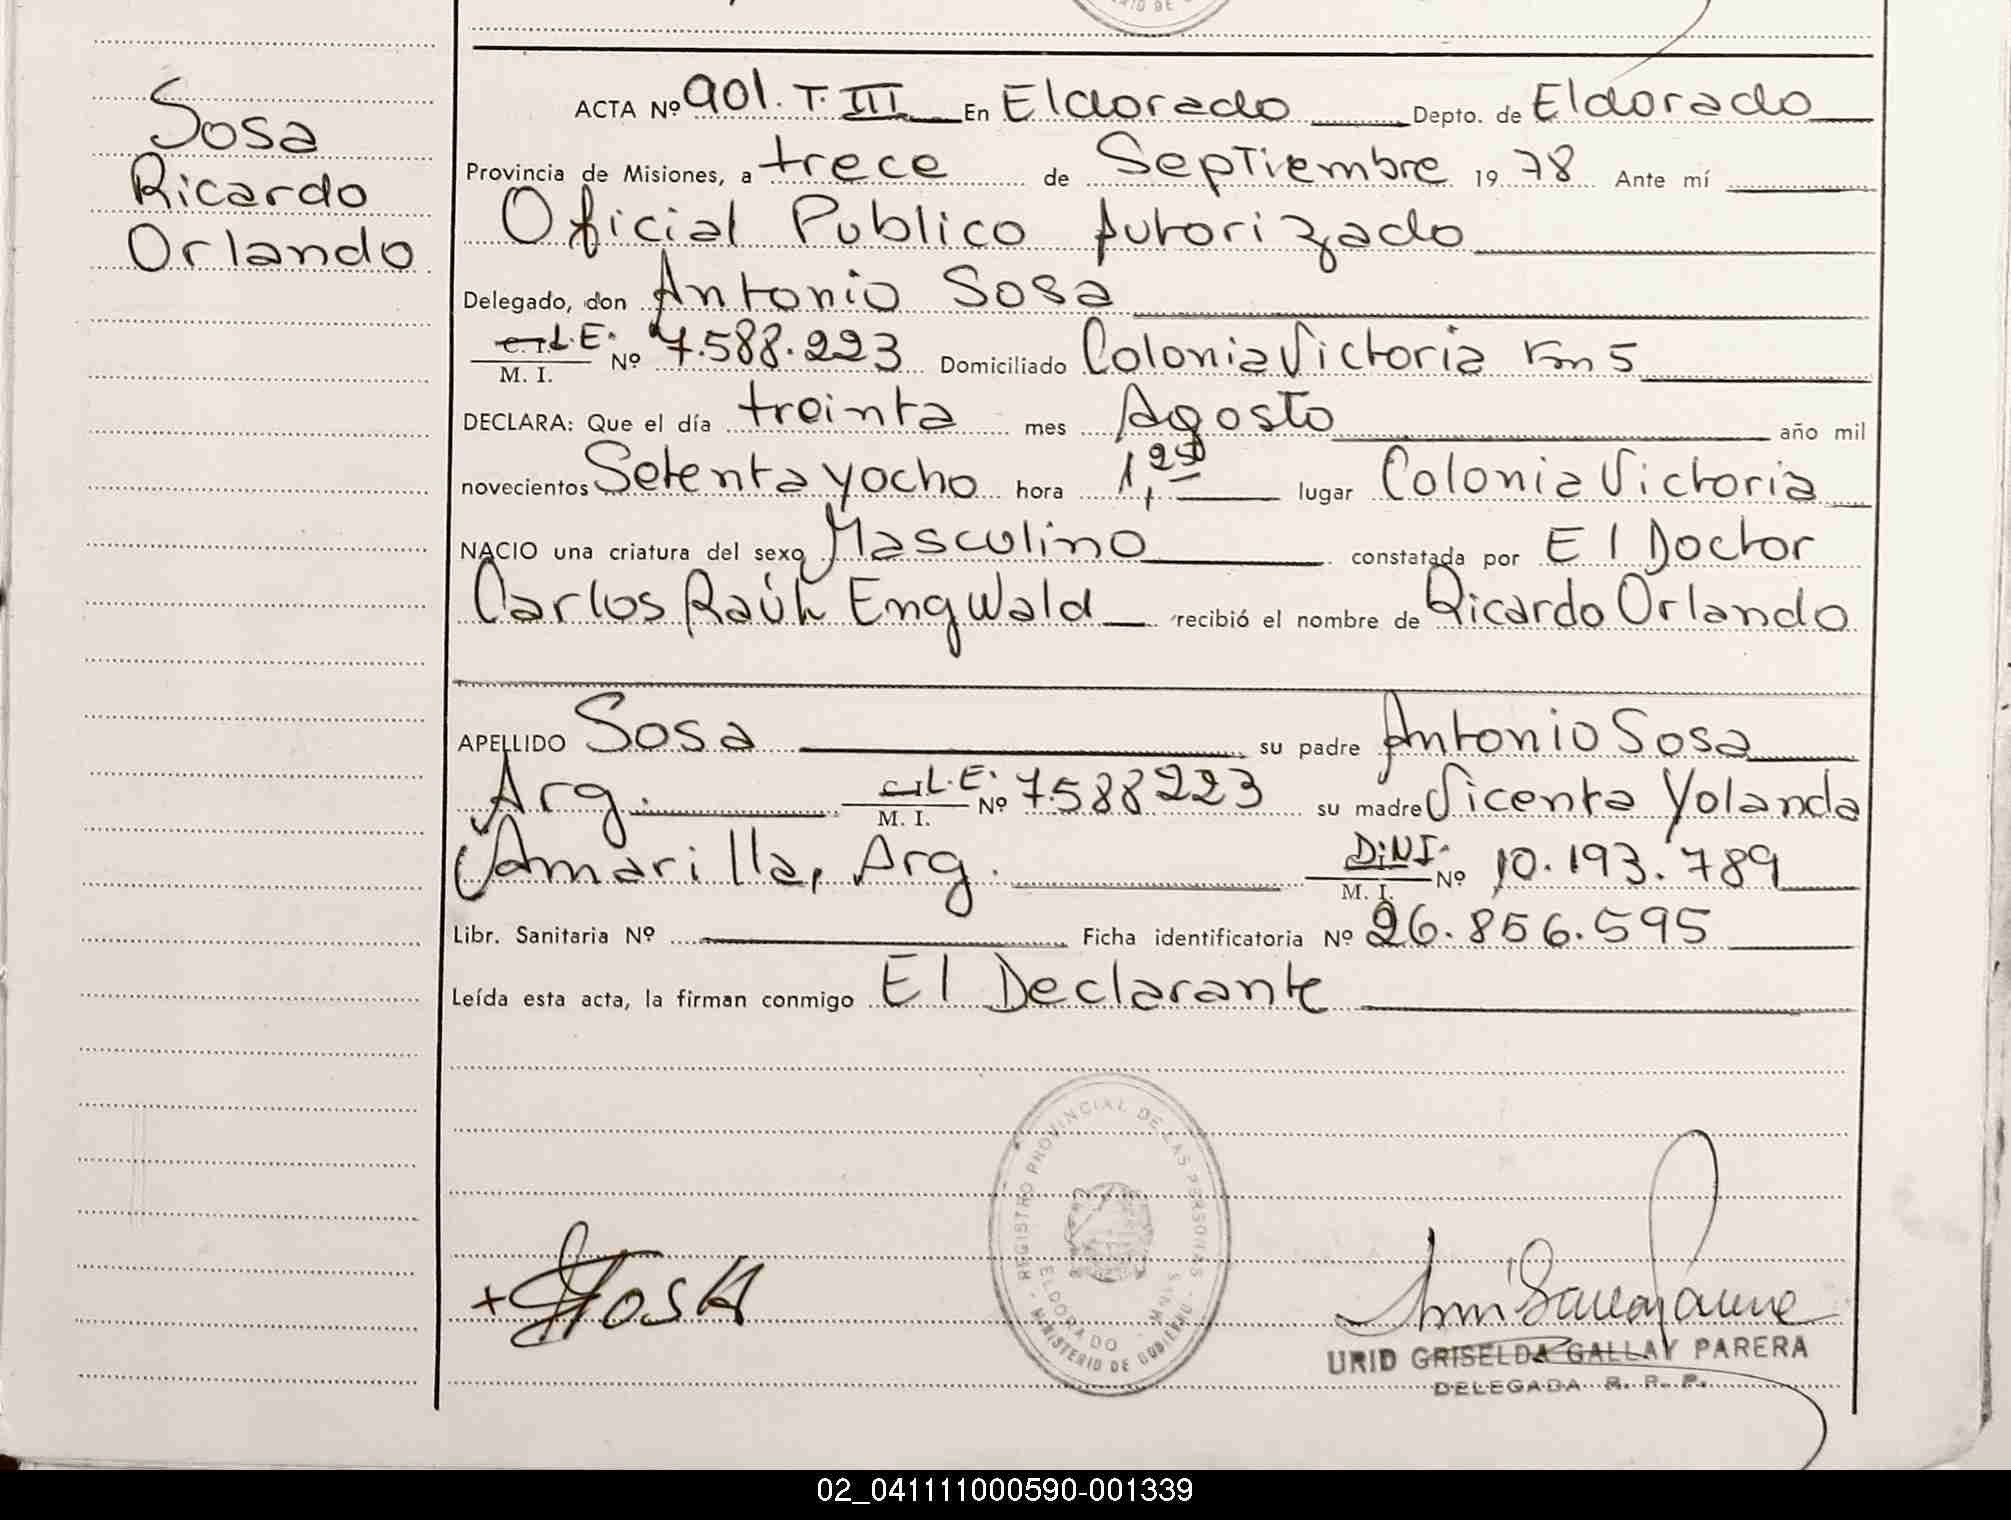 RIO DE
Sosa
Ricardo
Orlando
ACTA Nº 901. T. III En Eldorado Depto. de Eldorado
Provincia de Misiones, a trece de Septiembre 1978 Ante mí
Oficial Publico Autorizado
Delegado, don Antonio Sosa
C. I. L.E. M. I. Nº 7.588.223 Domiciliado Colonia Victoria Km 5
DECLARA: Que el día treinta mes Agosto año mil
novecientos Setenta y ocho hora 1, lugar Colonia Victoria
NACIO una criatura del sexo Masculino constatada por El Doctor
Carlos Raúl Engwald recibió el nombre de Ricardo Orlando
APELLIDO Sosa su padre Antonio Sosa
Arg. C.I. L.E. M. I. Nº 7.588223 su madre Vicenta Yolanda
Amarilla, Arg. D.N.I. M. I. Nº 10.193.789
Libr. Sanitaria Nº Ficha identificatoria Nº 26.856.595
Leída esta acta, la firman conmigo El Declarante
REGISTRO PROVINCIAL DE LAS PERSONAS
ELDORADO - MNES
MINISTERIO DE GOBIERNO
+ Sosa
URID GRISELDA GALLAY PARERA
DELEGADA R. P. P.
02_041111000590-001339